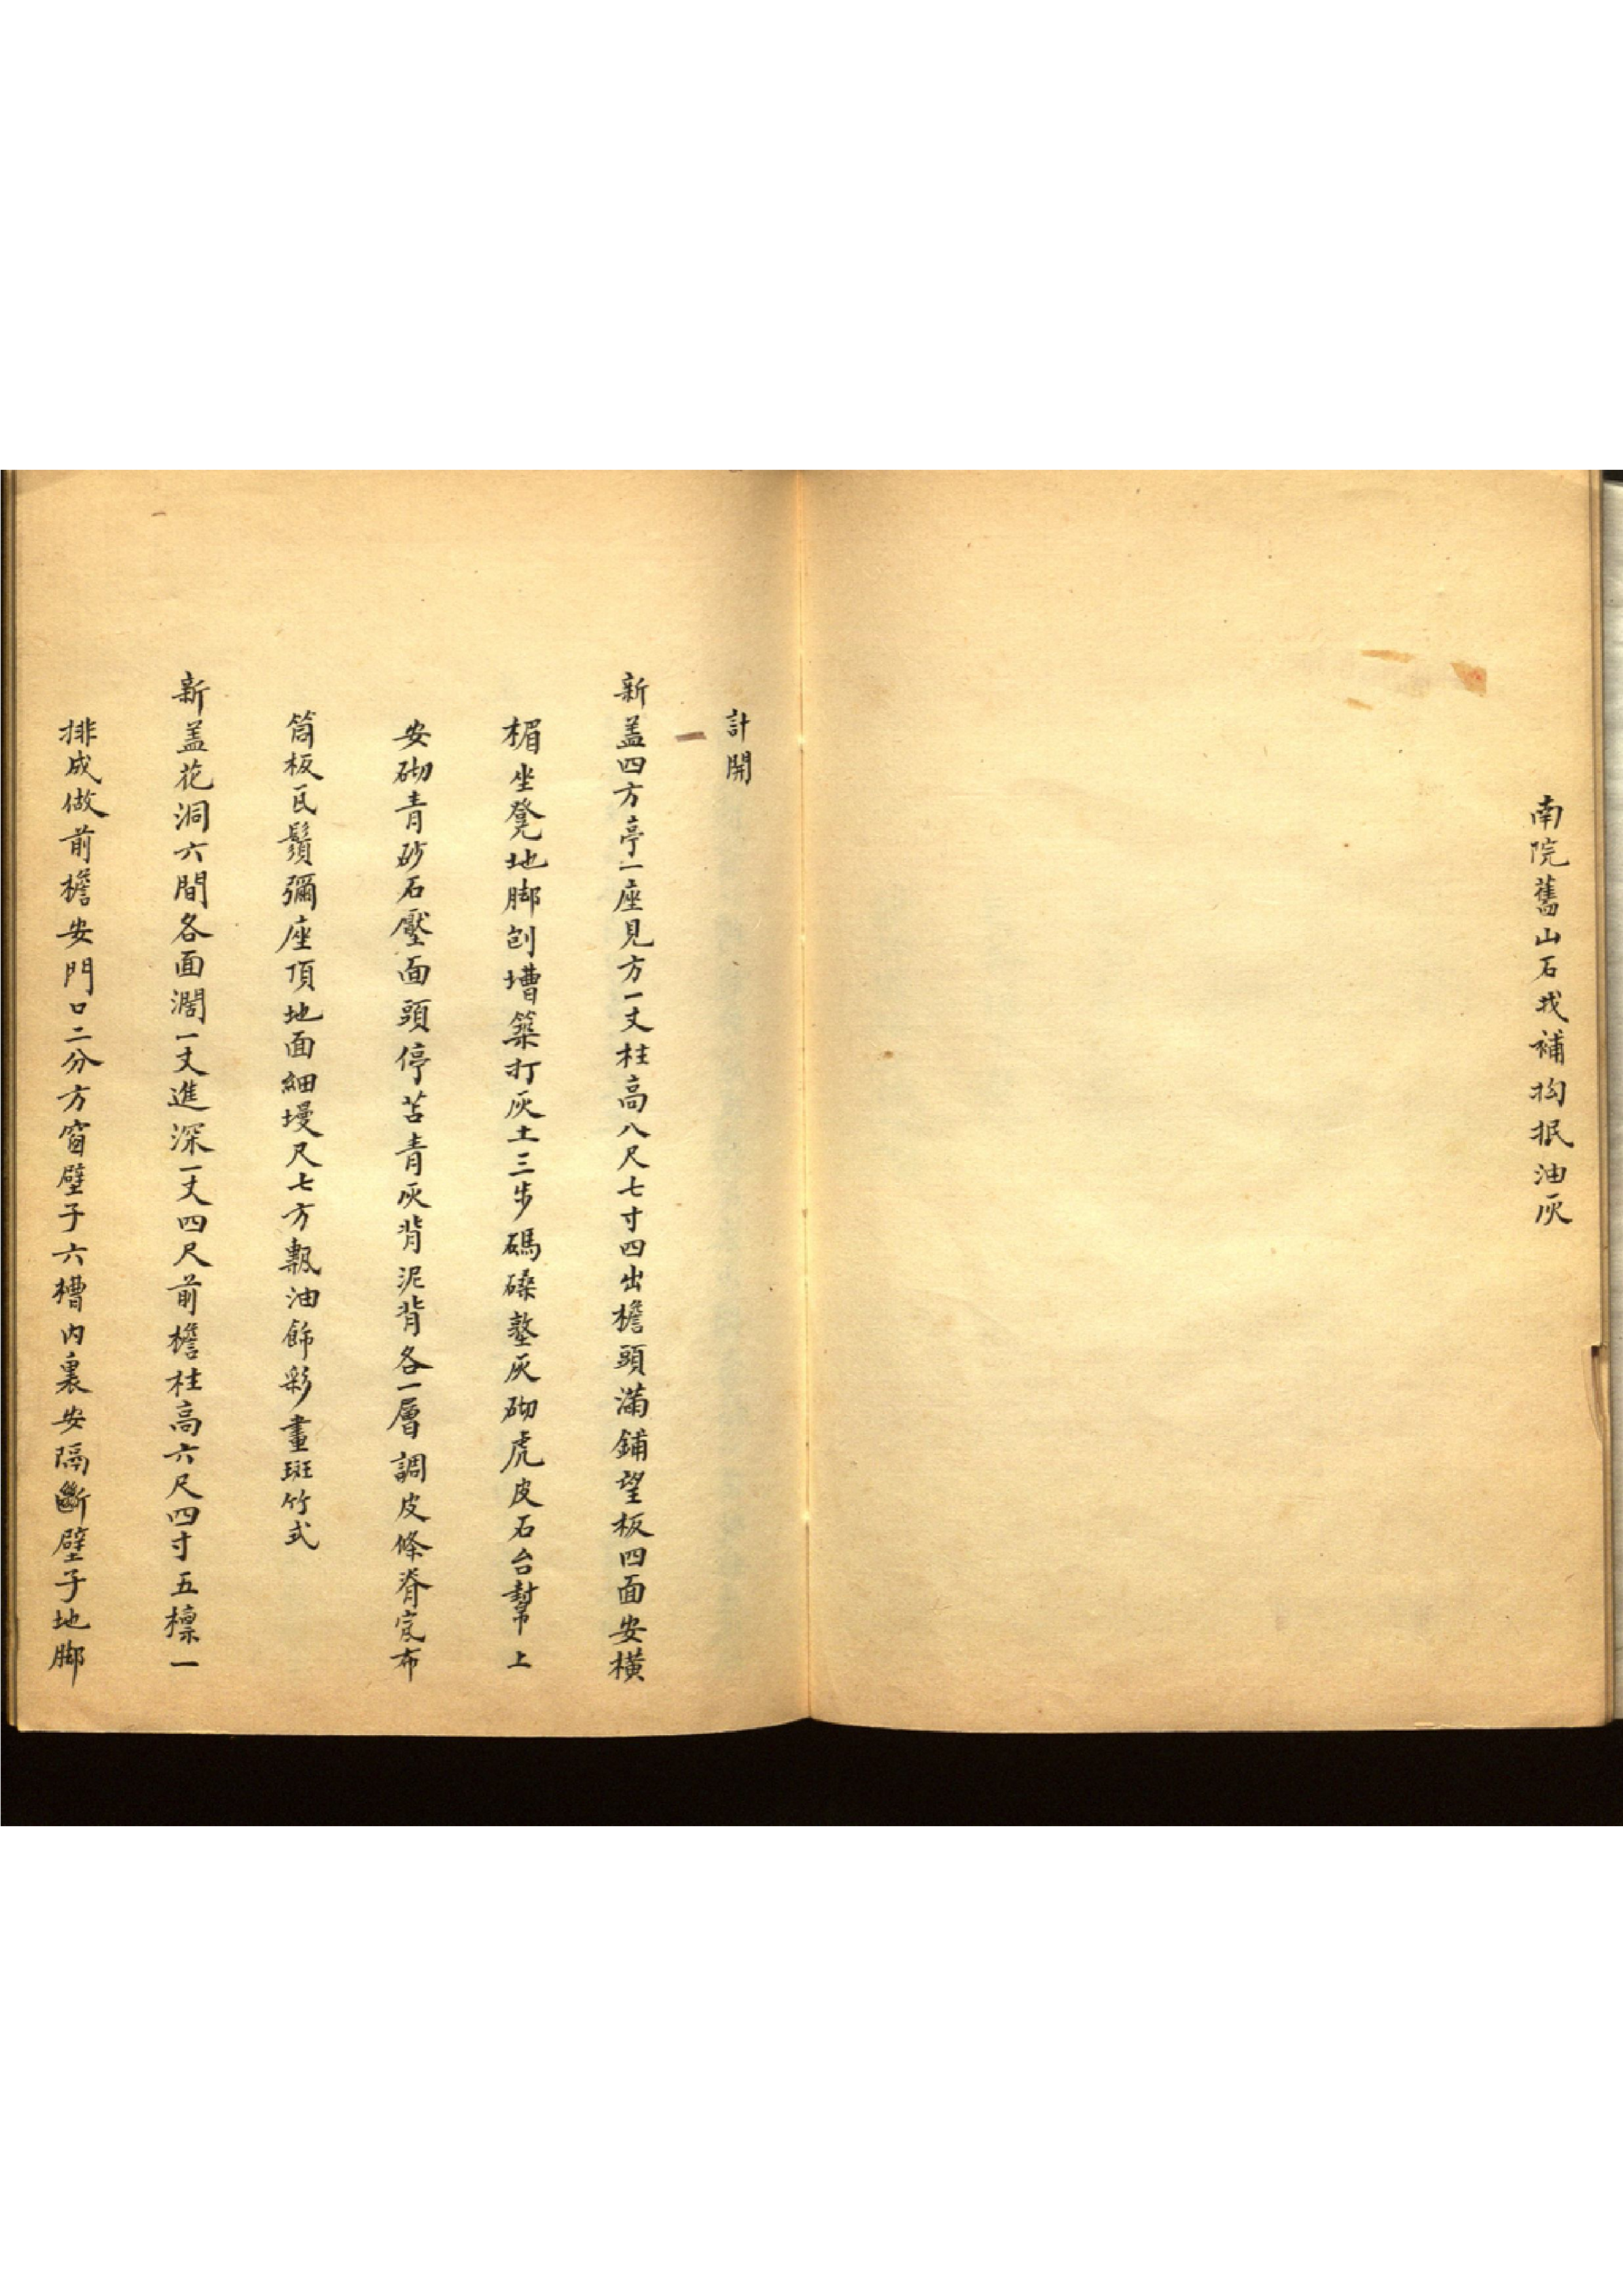 南院舊山石找補拘抿油灰
計開
新盖四方亭一座見方一丈柱高八尺七寸四出檐頭滿鋪望板四面安橫
楣坐凳地脚刨墻築打灰土三步碼磉墊灰砌虎皮石台幫上
安砌青砂石壓面頭停苫青灰背泥背各一層調皮條脊宽布
筒板瓦鬚彌座頂地面細墁尺七方甎油飾彩畫斑竹式
新盖花洞六間各面濶一丈進深一丈四尺前檐柱高六尺四寸五檁一
排成做前檐安門口二分方窗壁子六槽内裏安隔斷壁子地脚